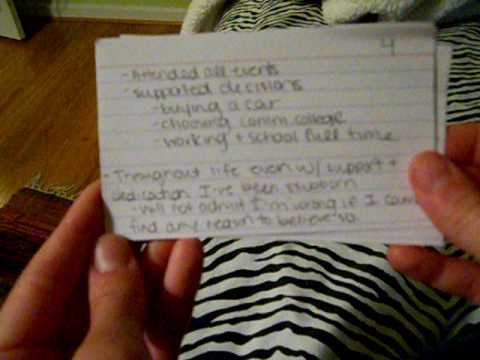 4
- Attended all events
- supported decisions
- buying a car
- choosing comm. college
- working + school full time
- Throughout life even w/ support +
dedication I've been stubborn
- Will not admit I'm wrong if I can
find any reason to believe so